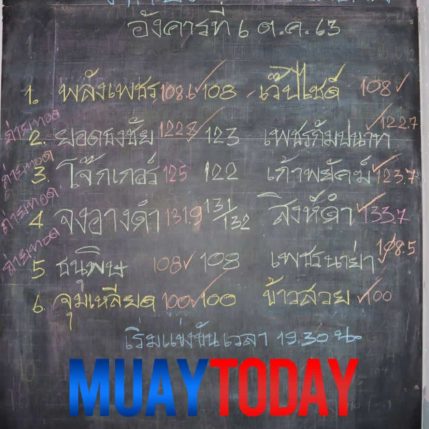 อังคารที่ 6 ต.ค. 63
1. พลังเพชร 108.6 ✓ 108 เว็ปไซด์ 108 ✓
ถ่ายทอด 2. ยอดธงชัย 122.8 ✓ 123 เพชรกัมปนาท ✓ 122.7
ถ่ายทอด 3 โจ๊กเกอร์ 125 122 เก้าพยัคฆ์ ✓ 123.7
ถ่ายทอด 4 จงอางดำ 131.9 131/132 สิงห์ดำ ✓ 133.7
ถ่ายทอด 5 ธนูพิษ 108 ✓ 108 เพชรนาย่า 108.5
6. จุมเหลียด 100 ✓ 100 ข้าวสวย ✓ 100
เริ่มแข่งขันเวลา 19.30 น.
MUAYTODAY